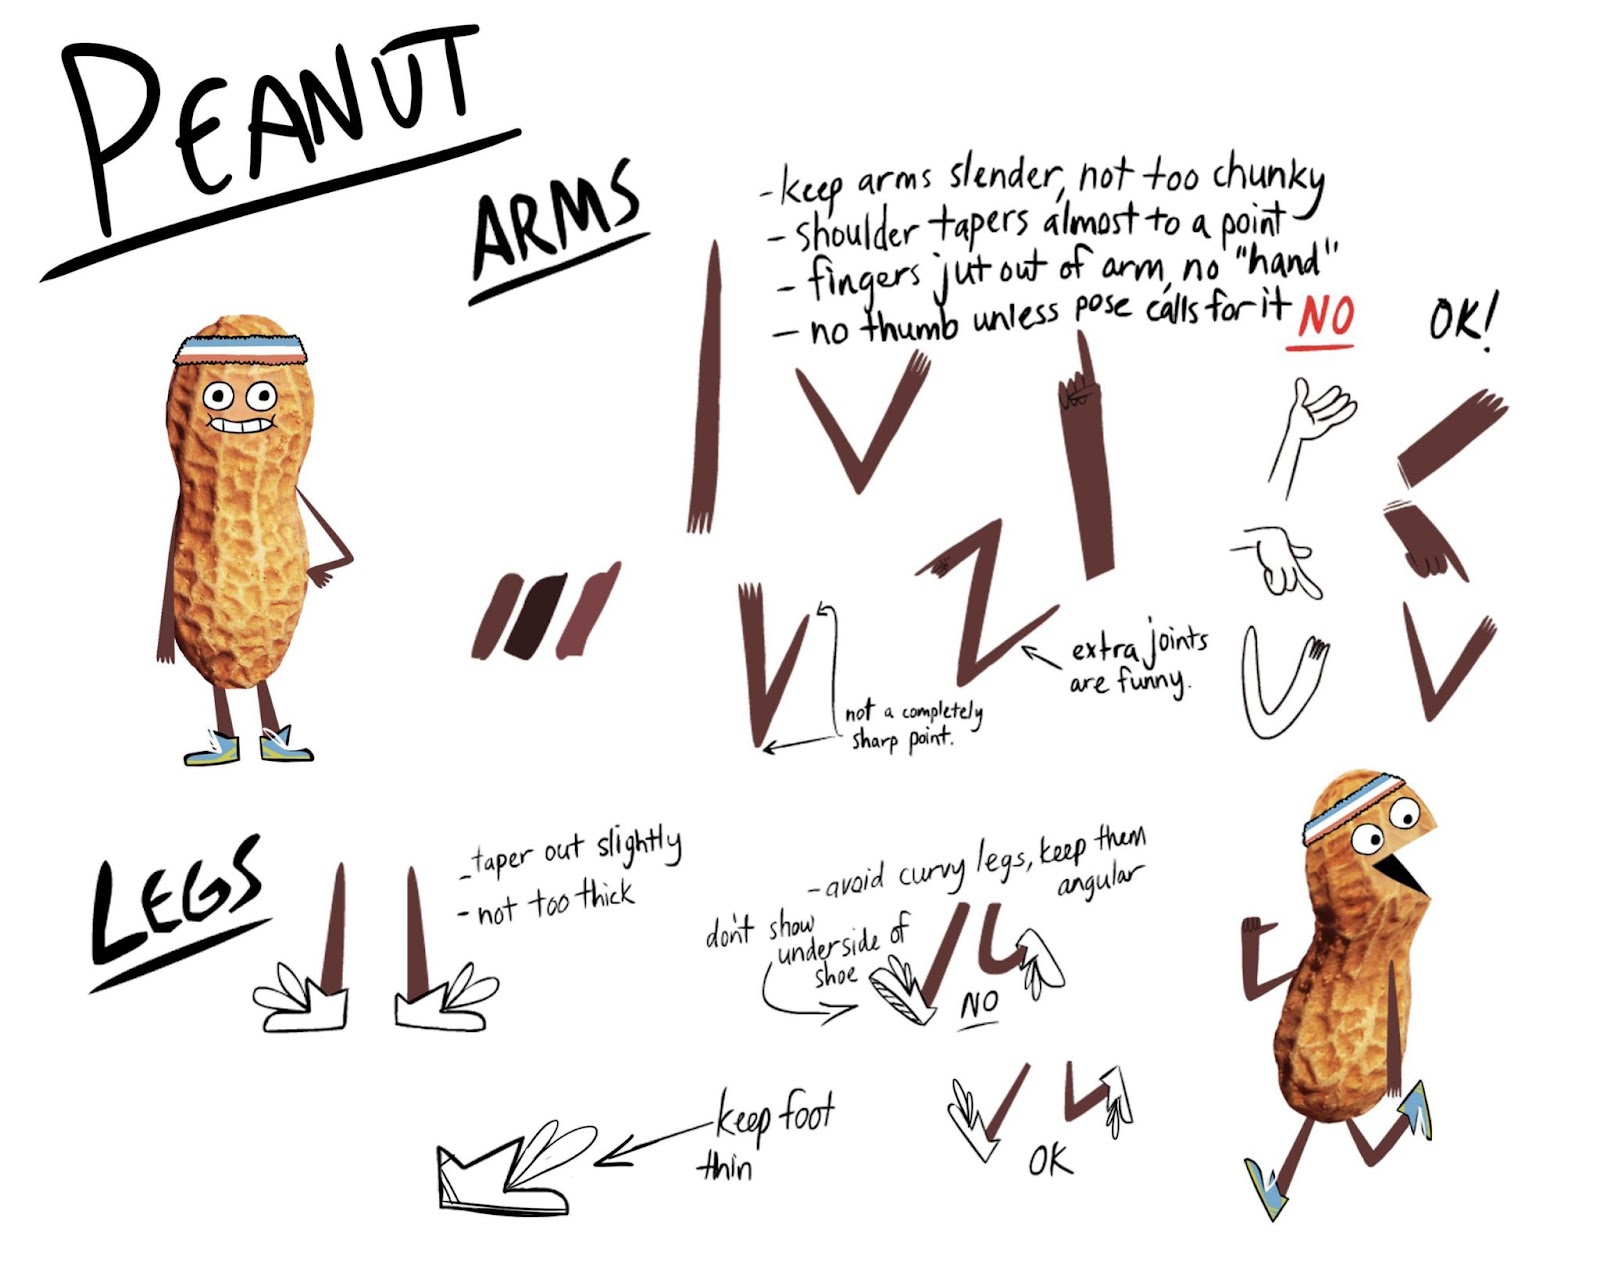 PEANUT
ARMS
- keep arms slender, not too chunky
- shoulder tapers almost to a point
- fingers jut out of arm, no "hand"
- no thumb unless pose calls for it
NO
OK!
extra joints
are funny.
not a completely
sharp point.
LEGS
- taper out slightly
- not too thick
- avoid curvy legs, keep them
angular
don't show
underside of
shoe
NO
OK
keep foot
thin